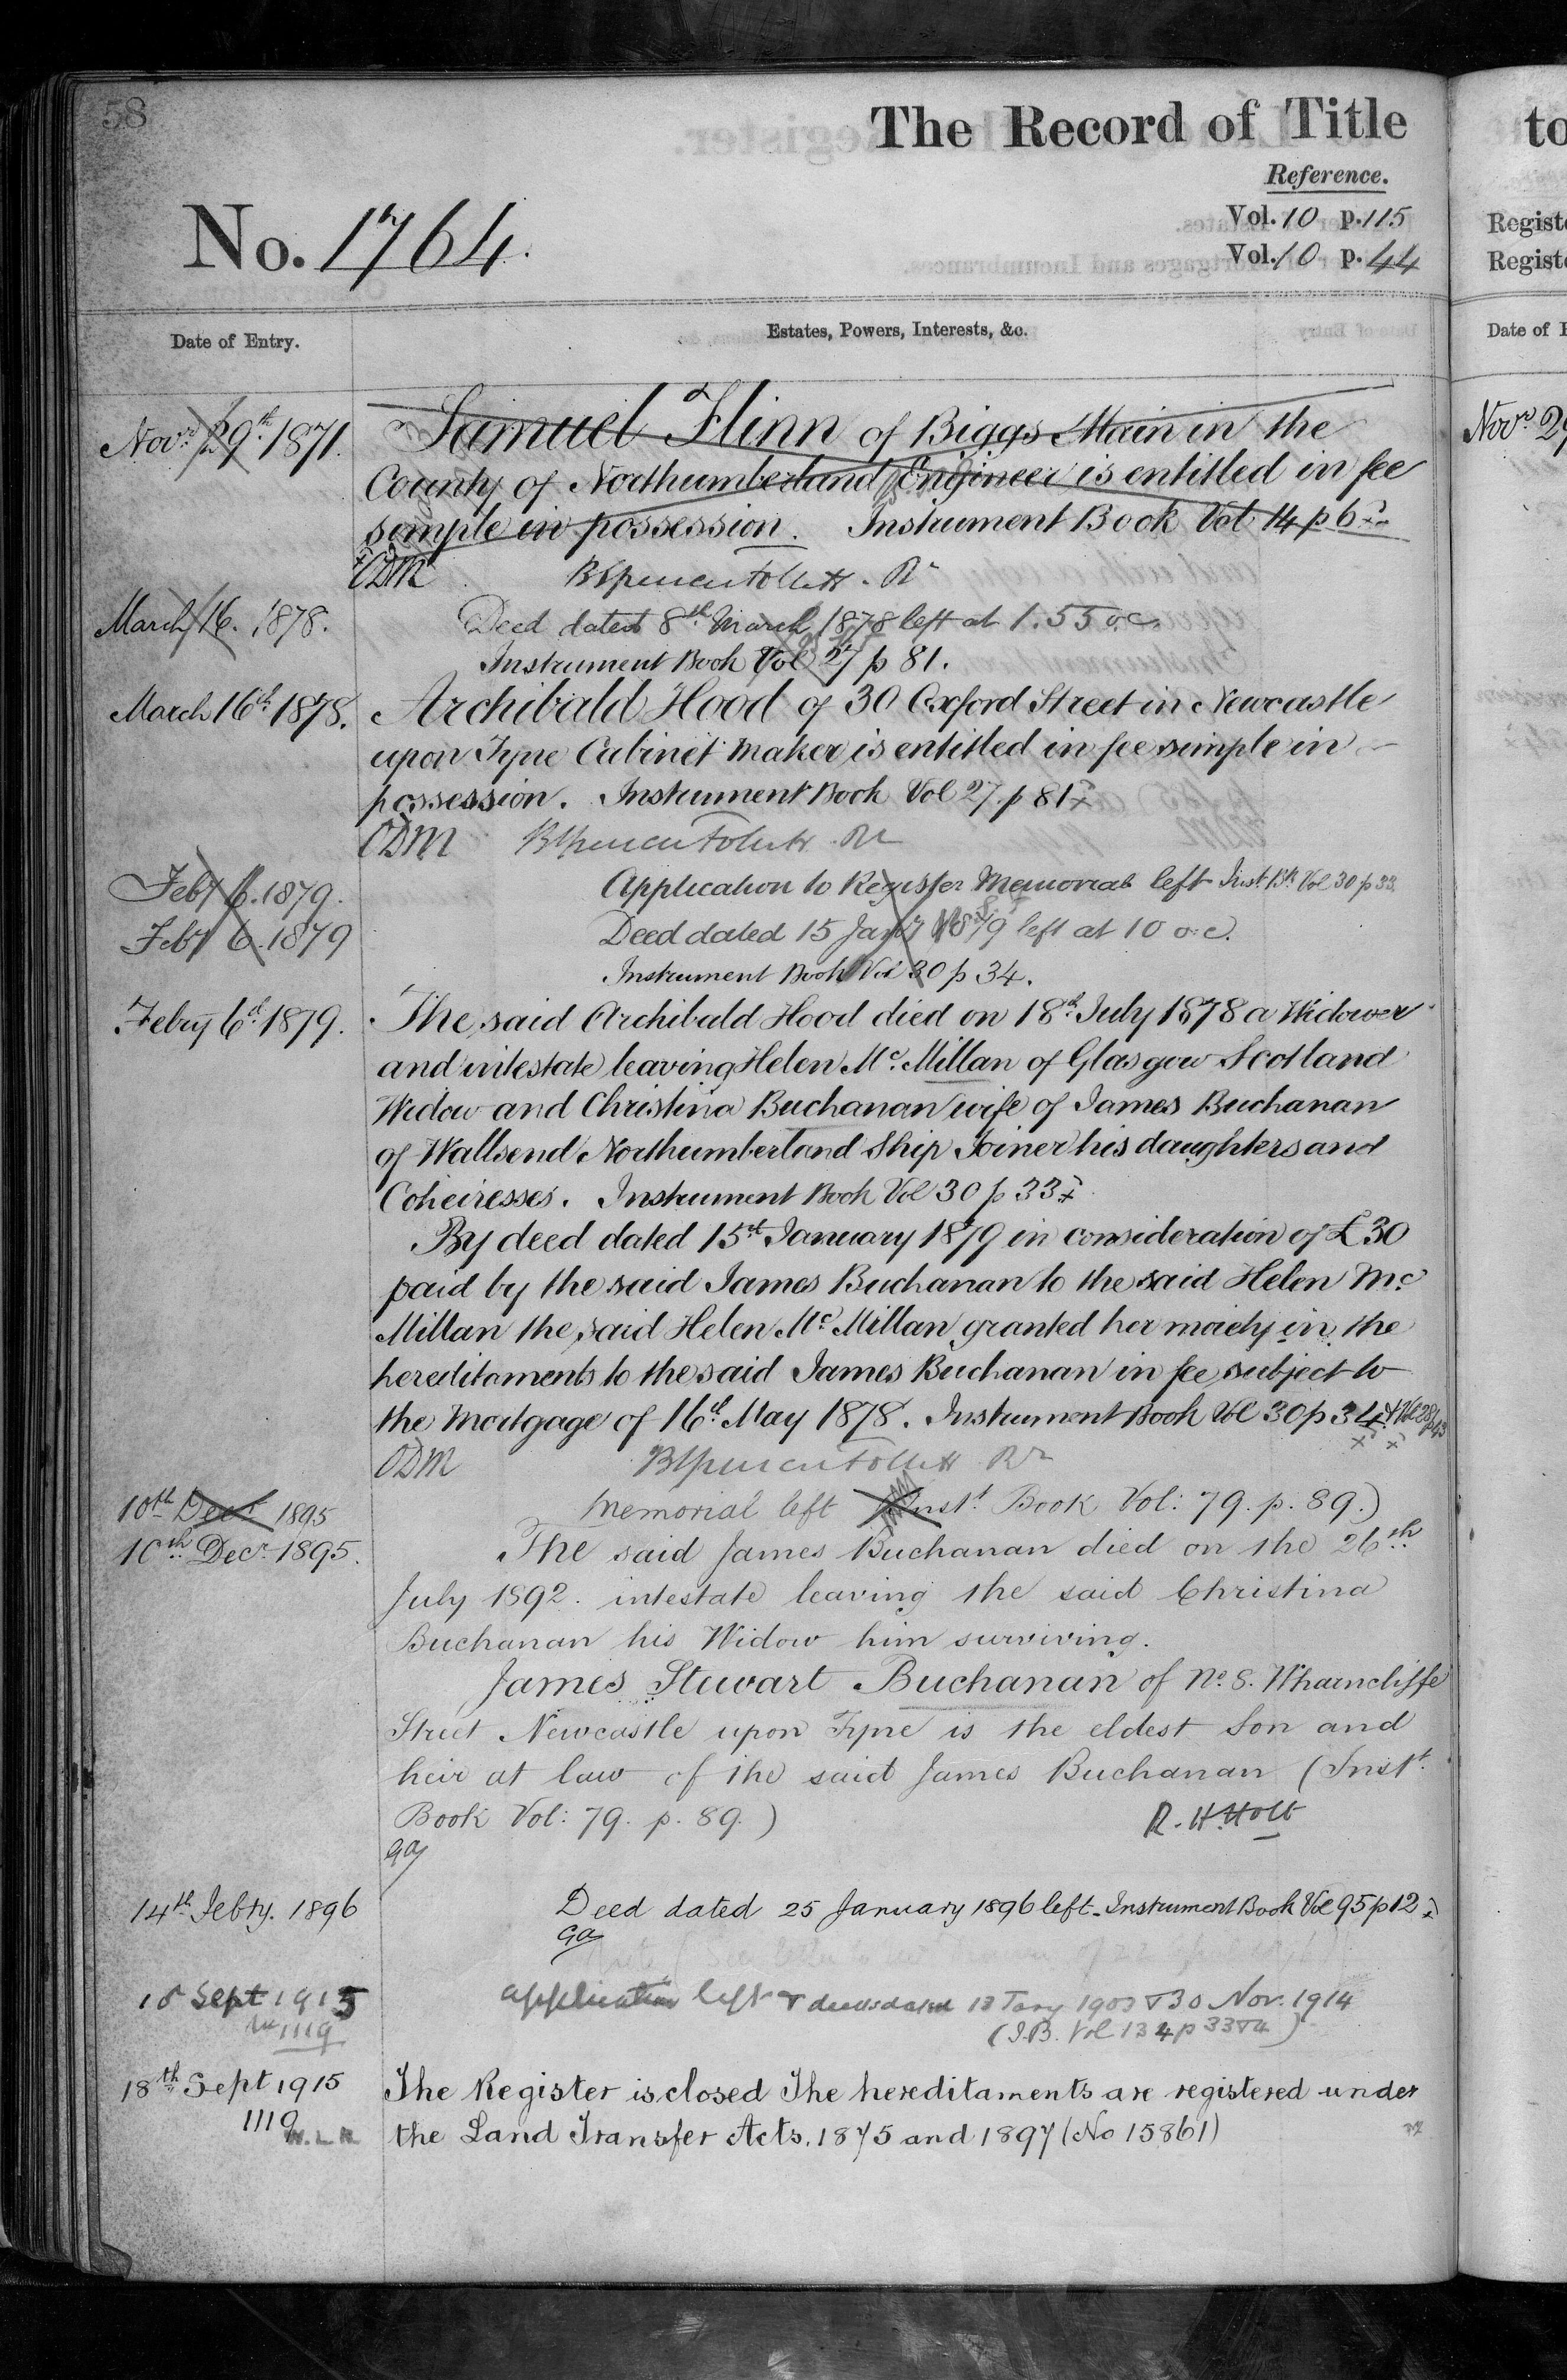 58
The Record of Title
Reference.
No. 1764.
Vol. 10 p. 115
Vol. 10 p. 44
Date of Entry.
Estates, Powers, Interests, &c.
Novr. 29th. 1871.
Samuel Flinn of Biggs Main in the
County of Northumberland Engineer is entitled in fee
simple in possession. Instrument Book Vol 14 p 6
ODM
March 16. 1878.
Deed dated 8th March 1878 left at 1.55 o.c.
Instrument Book Vol 27 p 81.
March 16th 1878.
Archibald Hood of 30 Oxford Street in Newcastle
upon Tyne Cabinet Maker is entitled in fee simple in
possession. Instrument Book Vol 27. p 81
ODM
Feby 6. 1879.
Application to Register Memorial left Inst. Bk Vol 30 p 33.
Feby 6. 1879
Deed dated 15 Jany 1879 left at 10 o.c.
Instrument Book Vol 30 p 34.
Febry 6th. 1879.
The said Archibald Hood died on 18th. July 1878 a Widower
and intestate leaving Helen Mc. Millan of Glasgow Scotland
Widow and Christina Buchanan wife of James Buchanan
of Wallsend Northumberland Ship Joiner his daughters and
Coheiresses. Instrument Book Vol 30 p 33
By deed dated 15th January 1879 in consideration of £30
paid by the said James Buchanan to the said Helen Mc.
Millan the said Helen Mc. Millan granted her moiety in the
hereditaments to the said James Buchanan in fee subject to
the Mortgage of 16th May 1878. Instrument Book Vol 30 p 34
ODM
10th Decr 1895
Memorial left Inst. Book Vol: 79. p. 89.)
10th. Decr. 1895.
The said James Buchanan died on the 26th.
July 1892. intestate leaving the said Christina
Buchanan his Widow him surviving.
James Stewart Buchanan of No. 8. Wharncliffe
Street Newcastle upon Tyne is the eldest Son and
heir at law of the said James Buchanan (Inst.
Book Vol: 79. p. 89.)
R. H. Holt
14th Febry. 1896
Deed dated 25 January 1896 left. Instrument Book Vol 95 p 12
Sept 1915
1119
application left & deeds dated Jany & 30 Nov. 1914
(I.B. Vol 134 p 33&4)
18th Sept 1915
The Register is closed The hereditaments are registered under
1119
W.L.R.
the Land Transfer Acts, 1875 and 1897 (No 15861)
to
Date of
Novr 29